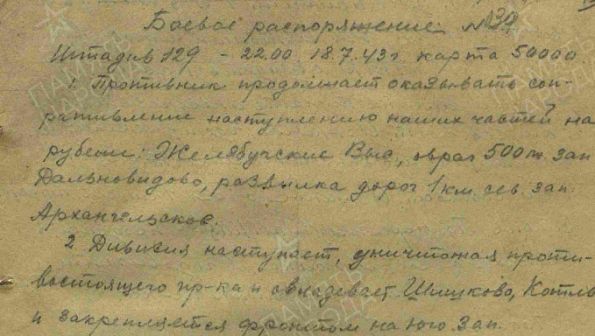 Боевое распоряжение №30
Штадив 129 - 22.00 18.7.43г карта 50000
1. Противник продолжает оказывать соп-
ротивление наступлению наших частей на
рубеже: Желябугские Выс., овраг 500 м. зап
Дальновидово, развилка дорог 1 км. сев. зап.
Архангельское.
2. Дивизия наступает, уничтожая проти-
востоящего пр-ка и овладевает Шишково, Котлы
и закрепляется фронтом на юго. зап.